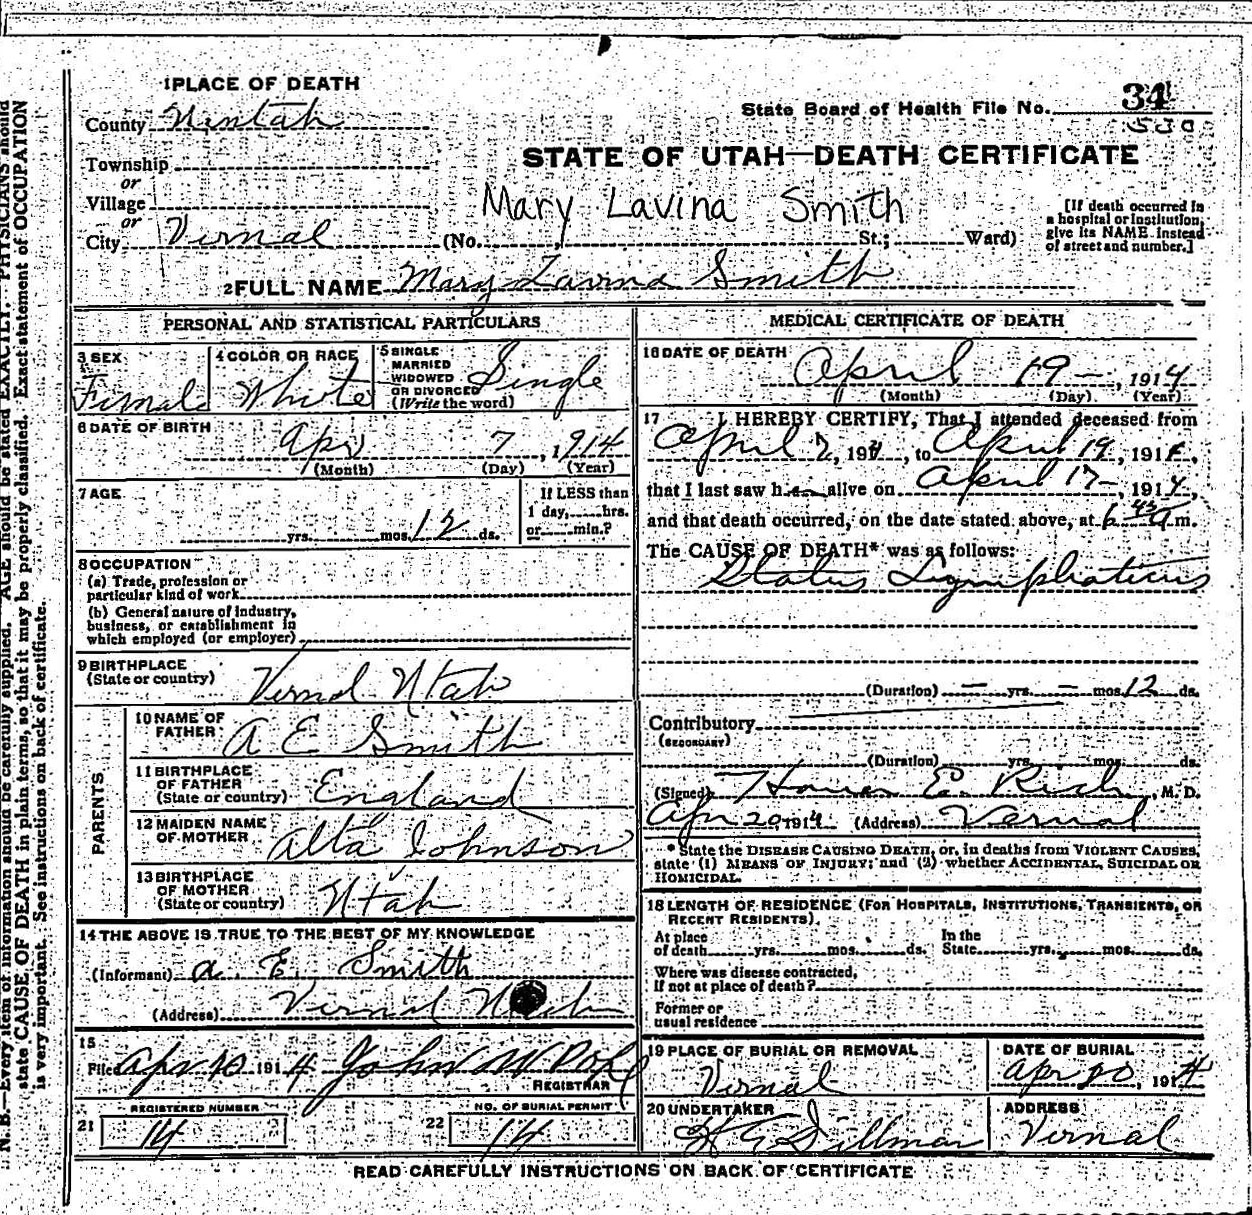 1 PLACE OF DEATH
County Uintah
Township
or
Village
or
City Vernal (No. St.; Ward)
State Board of Health File No. 34
530
STATE OF UTAH—DEATH CERTIFICATE
Mary Lavina Smith
[If death occurred in a hospital or institution, give its NAME instead of street and number.]
2 FULL NAME Mary Lavina Smith
PERSONAL AND STATISTICAL PARTICULARS
3 SEX Female
4 COLOR OR RACE White
5 SINGLE MARRIED WIDOWED OR DIVORCED (Write the word) Single
6 DATE OF BIRTH Apr 7, 1914
(Month) (Day) (Year)
7 AGE yrs. mos. 12 ds.
If LESS than 1 day, hrs. or min.?
8 OCCUPATION
(a) Trade, profession or particular kind of work
(b) General nature of industry, business, or establishment in which employed (or employer)
9 BIRTHPLACE (State or country) Vernal Utah
PARENTS
10 NAME OF FATHER A E Smith
11 BIRTHPLACE OF FATHER (State or country) England
12 MAIDEN NAME OF MOTHER Alta Johnson
13 BIRTHPLACE OF MOTHER (State or country) Utah
14 THE ABOVE IS TRUE TO THE BEST OF MY KNOWLEDGE
(Informant) A. E. Smith
(Address) Vernal Utah
15
Filed Apr 20 1914 John W Pope
REGISTRAR
21 REGISTERED NUMBER 14
22 NO. OF BURIAL PERMIT 14
MEDICAL CERTIFICATE OF DEATH
16 DATE OF DEATH April 19 —, 1914
(Month) (Day) (Year)
17 I HEREBY CERTIFY, That I attended deceased from
April 7, 1914, to April 19, 1914,
that I last saw her alive on April 17—, 1914,
and that death occurred, on the date stated above, at 6 45 a m.
The CAUSE OF DEATH* was as follows:
Status Lymphaticus
(Duration) — yrs. — mos. 12 ds.
Contributory
(SECONDARY)
(Duration) yrs. mos. ds.
(Signed) Homer E. Rich, M. D.
Apr 20, 1914 (Address) Vernal
* State the DISEASE CAUSING DEATH, or, in deaths from VIOLENT CAUSES,
state (1) MEANS OF INJURY; and (2) whether ACCIDENTAL, SUICIDAL OR
HOMICIDAL.
18 LENGTH OF RESIDENCE (FOR HOSPITALS, INSTITUTIONS, TRANSIENTS, OR
RECENT RESIDENTS).
At place of death yrs. mos. ds. In the State yrs. mos. ds.
Where was disease contracted,
If not at place of death?
Former or
usual residence
19 PLACE OF BURIAL OR REMOVAL Vernal
DATE OF BURIAL Apr 20, 1914
20 UNDERTAKER Dillman
ADDRESS Vernal
READ CAREFULLY INSTRUCTIONS ON BACK OF CERTIFICATE
N. B.—Every item of information should be carefully supplied. AGE should be stated EXACTLY. PHYSICIANS should
state CAUSE OF DEATH in plain terms, so that it may be properly classified. Exact statement of OCCUPATION
is very important. See instructions on back of certificate.